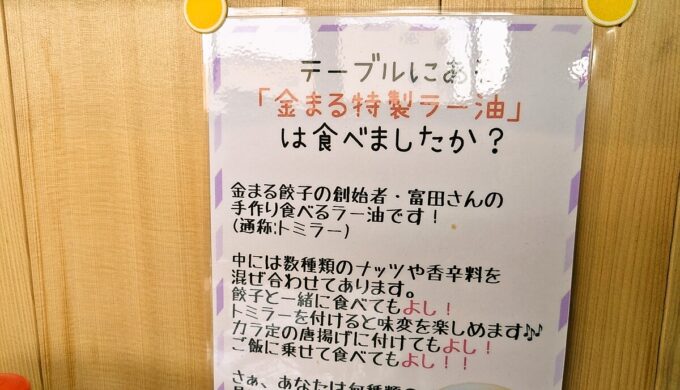 テーブルにある
「金まる特製ラー油」
は食べましたか？
金まる餃子の創始者・富田さんの
手作り食べるラー油です！
(通称:トミラー)
中には数種類のナッツや香辛料を
混ぜ合わせてあります。
餃子と一緒に食べてもよし！
トミラーを付けると味変を楽しめます🎶
カラ定の唐揚げに付けてもよし！
ご飯に乗せて食べてもよし！！
さぁ、あなたは何種類の